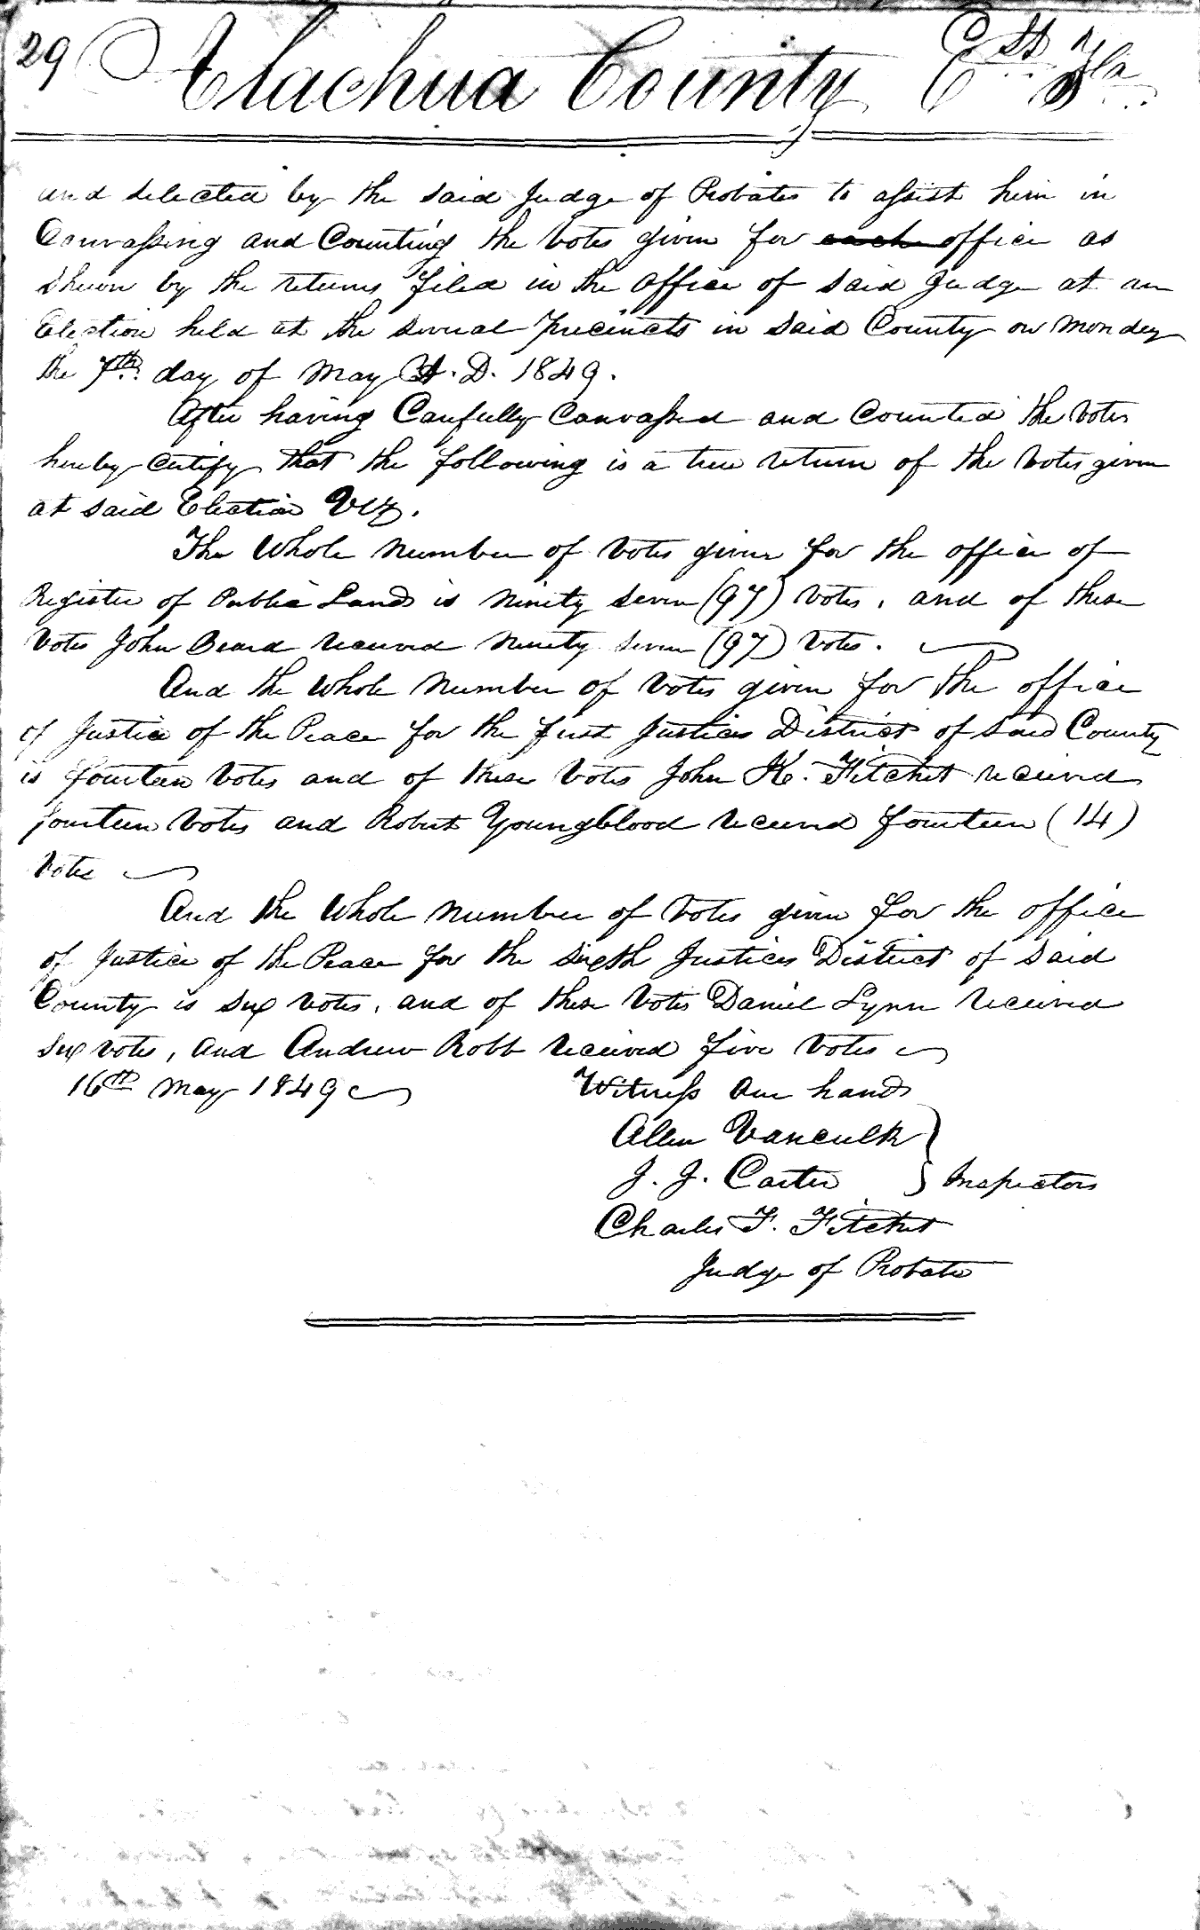 29 Alachua County Ct Fla
and selected by the said Judge of Probates to assist him in
Canvassing and Counting the votes given for each office as
shewn by the returns filed in the office of said Judge at an
Election held at the several Precincts in said County on Monday
the 7th day of May A.D. 1849.
After having Carefully Canvassed and Counted the votes
hereby certify that the following is a true return of the votes given
at said Election Viz.
The Whole number of votes given for the office of
Register of Public Lands is ninety seven (97) votes, and of these
votes John Beard received ninety seven (97) votes.
And the whole number of votes given for the office
of Justice of the Peace for the first Justices District of said County
is fourteen votes and of these votes John K. Fitchet received
fourteen votes and Robert Youngblood received fourteen (14)
votes
And the whole number of votes given for the office
of Justice of the Peace for the sixth Justices District of said
County is six votes, and of these votes Daniel Lynn received
six votes, and Andrew Robb received five votes
16th May 1849 Witness our hands
Allen
J. J. Carter Inspectors
Charles F. Fitchet
Judge of Probate